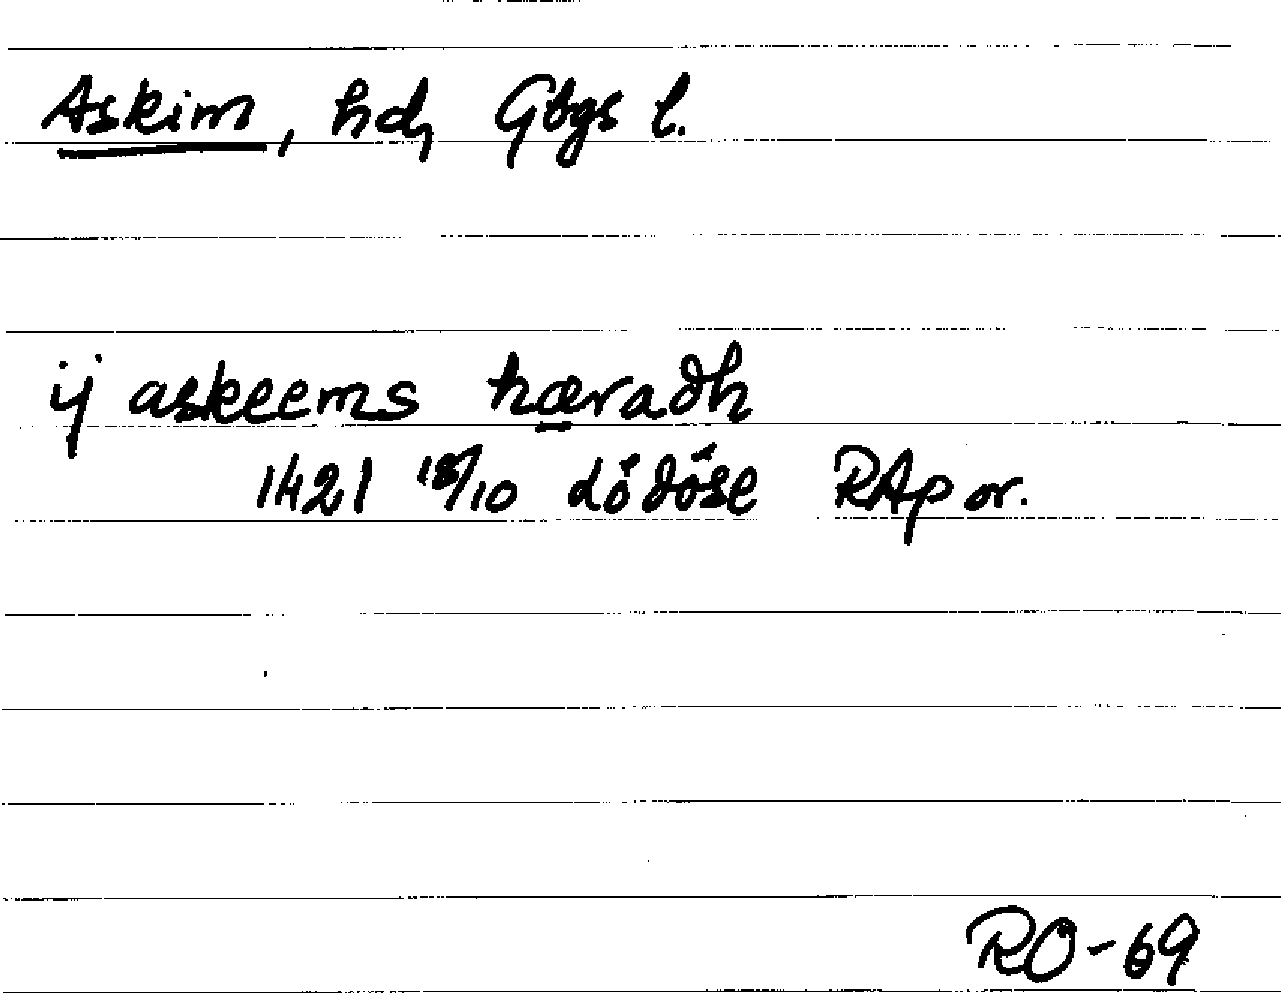 Askim, hd, Gbgs l.
ij askeems hæradh
1421 18/10 lödöse RAp or.
RO-69